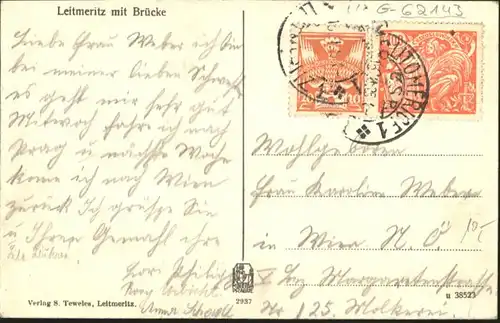 Leitmeritz mit Brücke
G-62143
Liebe Frau Weber ich bin
bei meiner lieben Schwester
es geht mir sehr gut
Mitwoch fahre ich nach
Prag u nächste Woche
kome ich nach Wien
zurück Ich grüsse Sie
u Ihren Gemahl ihre
LITOMĚŘICE 1
Wohlgeboren
Frau Karoline Weber
in Wien N. Ö
Margaretenstraße
Nr 125. Molkerei
Verlag S. Teweles, Leitmeritz.
2937
u 38523